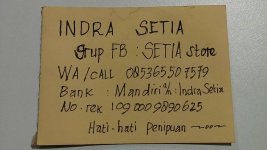 INDRA SETIA
Grup FB : SETIA store
WA/CALL 085365507579
Bank : Mandiri a/n : Indra Setia
No. rek 1090009890625
Hati-hati penipuan